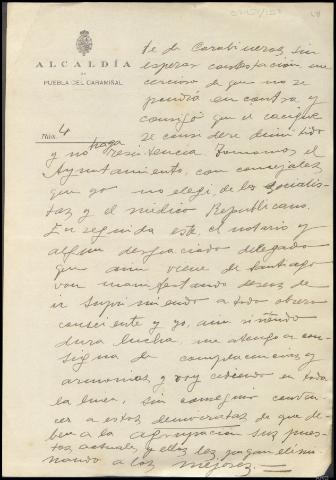 ALCALDÍA
DE
PUEBLA DEL CARAMIÑAL
Núm. 4
te de Carabineros, sin
esperar contestación, me
cercioro de que no se
pondrá en contra, y
consigo que el cacique
se considere dimitido
y no haga resistencia. Tomamos el
Ayuntamiento, con concejales
que yo no elegí de los socialis-
tas y el médico Republicano.
En seguida este, el notario y
algun desgraciado delegado
que aun viene de Santiago
van manifestando deseos de
ir suprimiendo a todo obrero
consciente y yo, aun siendo
dura lucha, me atengo a con-
signa de complacencias y
armonias, y voy cediendo en toda
la linea, sin conseguir conven-
cer a estos democratas de que de-
ben a la agrupación sus pues-
tos actuales y ellos les pagan elimi-
nando a los mejores.